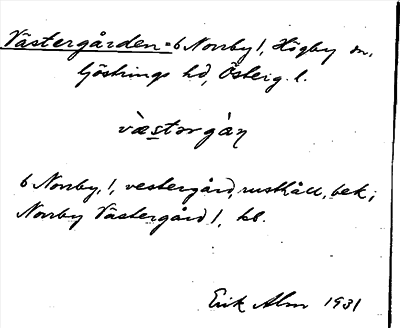 Västergården = 6 Norrby 1, Högby sn,
Göstrings hd, Österg. l.
væ̀stərgàṇ
6 Norrby, 1, vestergård, rusthåll, bek;
Norrby Västergård 1, kb.
Erik Alm 1931